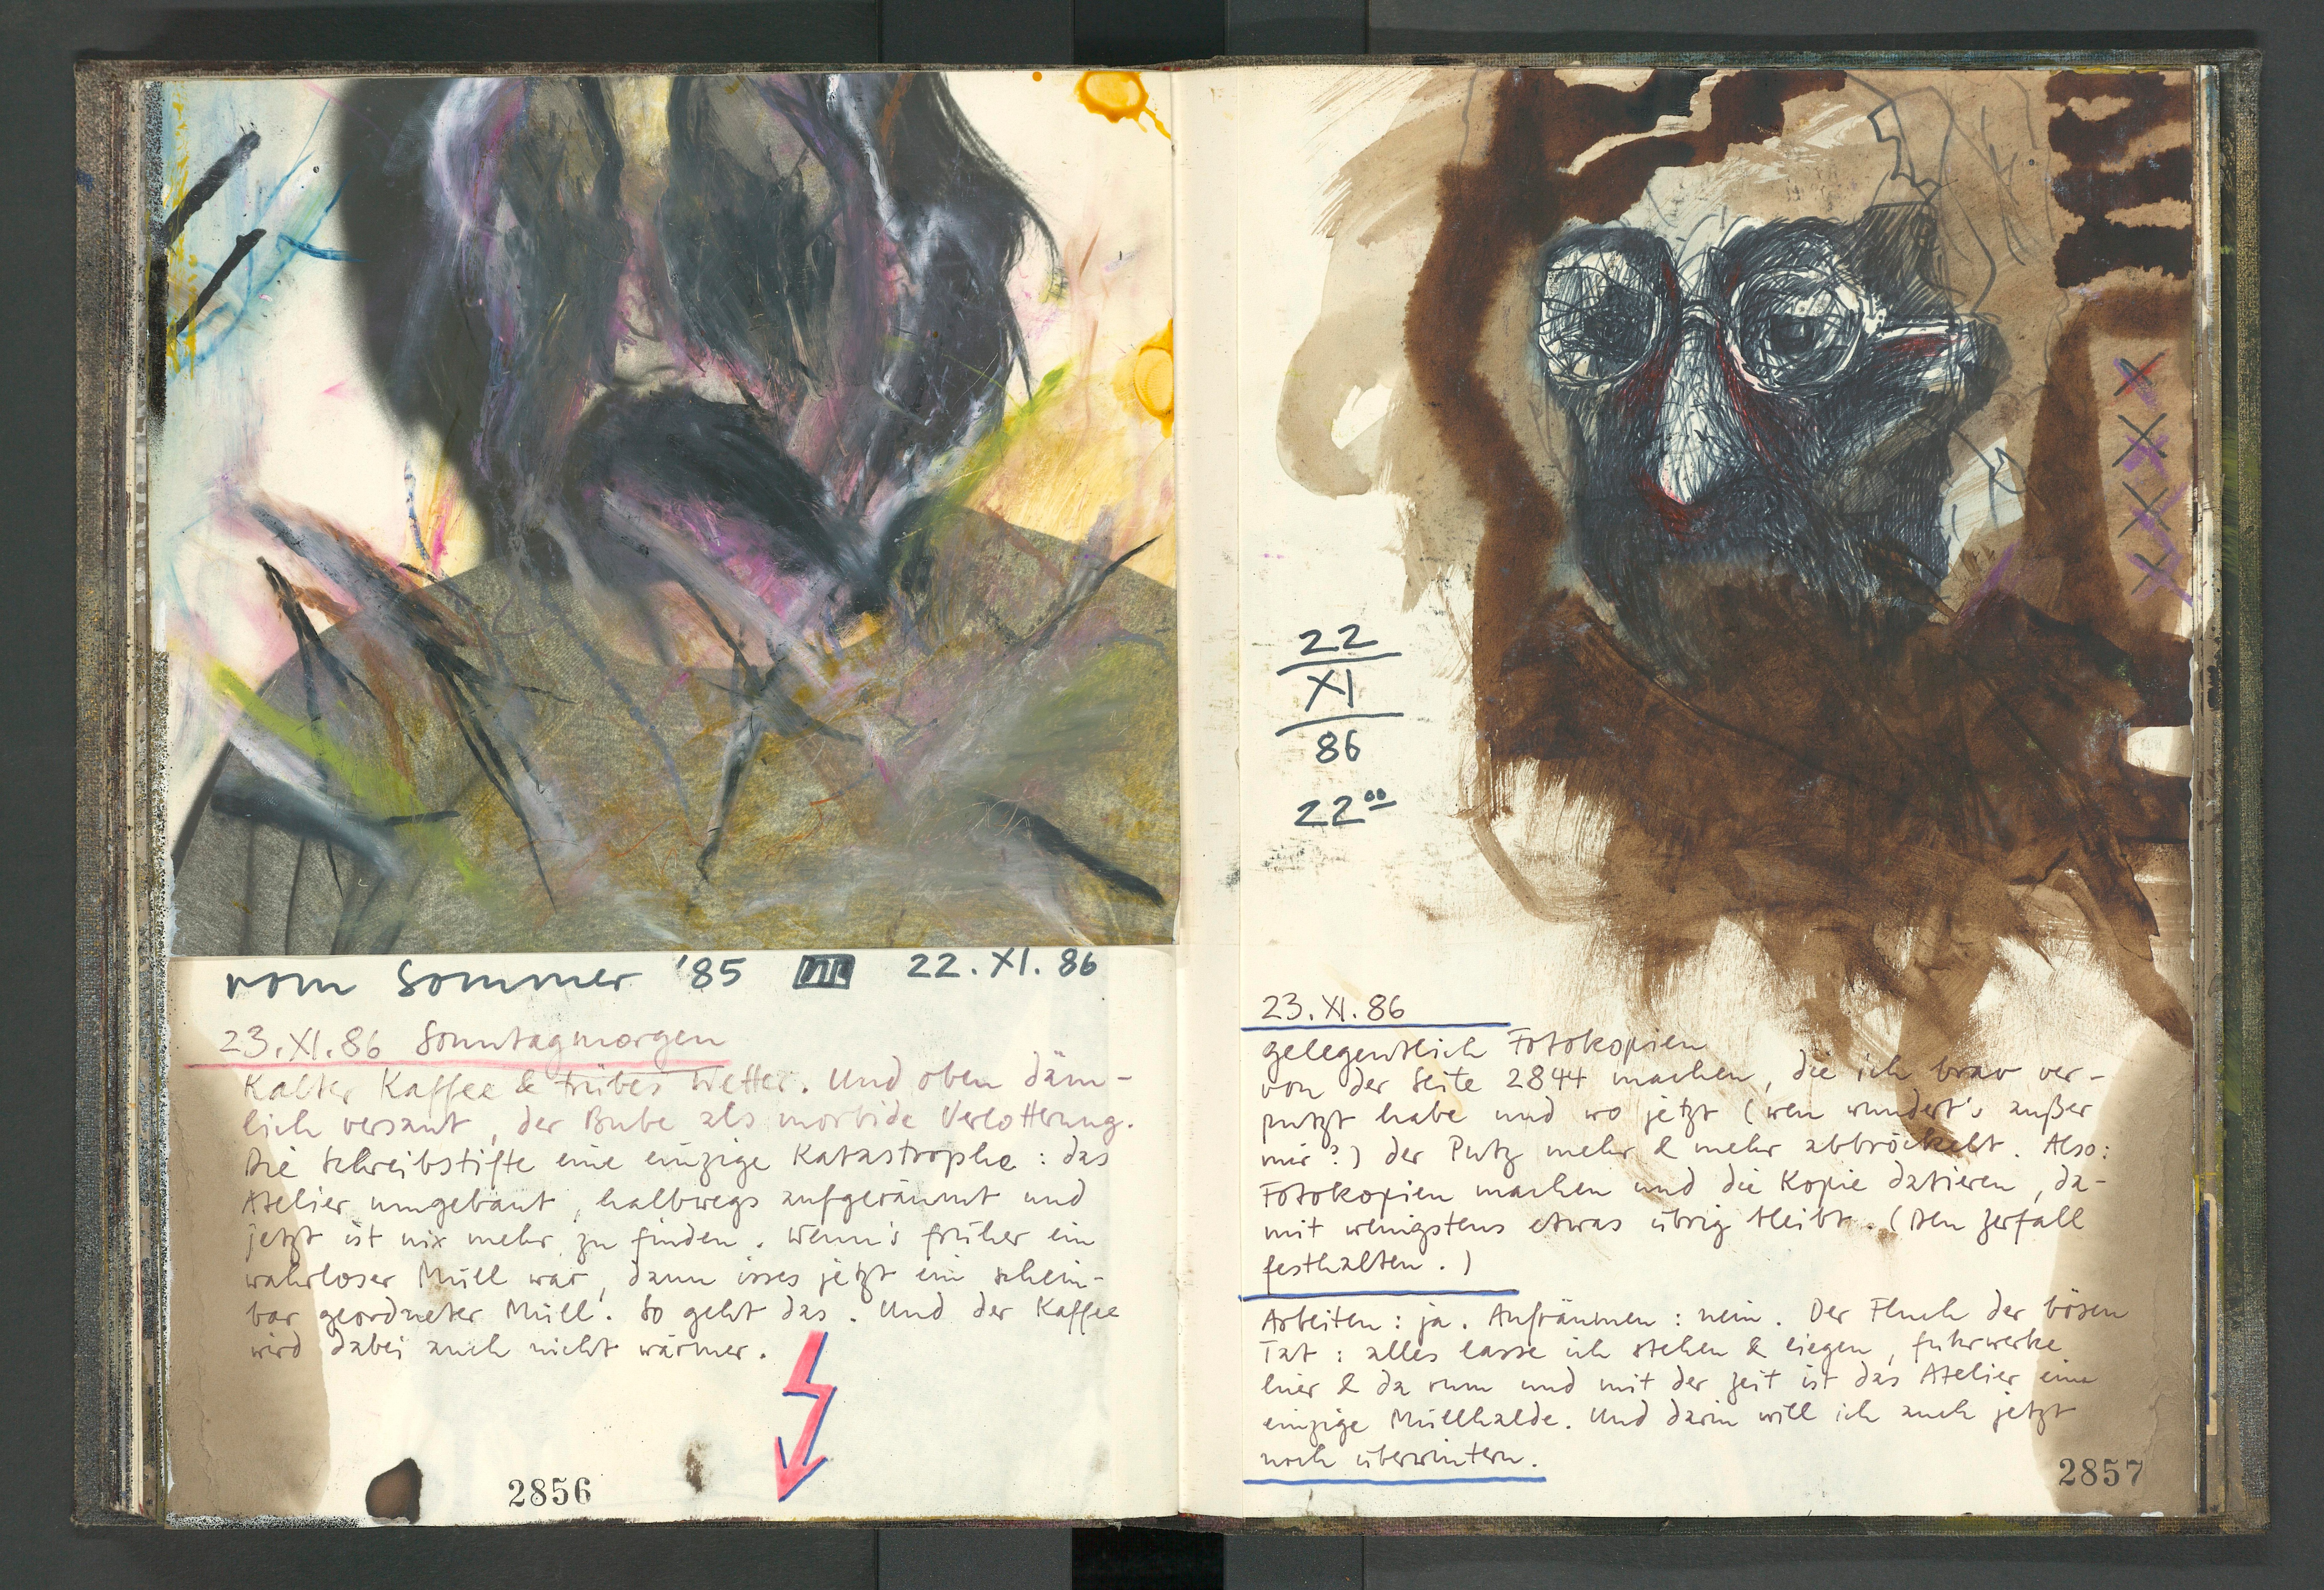 vom Sommer '85 III 22.XI.86
23.XI.86 Sonntagmorgen
Kalter Kaffee & trübes Wetter. Und oben däm-
lich versaut, der Bube als morbide Verlotterung.
Die Schreibstifte eine einzige Katastrophe: das
Atelier umgebaut, halbwegs aufgeräumt und
jetzt ist nix mehr zu finden. Wenn's früher ein
wahrloser Müll war, dann isses jetzt ein schein-
bar geordneter Müll. So geht das. Und der Kaffee
wird dabei auch nicht wärmer.
2856
22
XI
86
22⁰⁰
23.XI.86
gelegentlich Fotokopien
von der Seite 2844 machen, die ich brav ver-
putzt habe und wo jetzt (wen wundert's außer
mir?) der Putz mehr & mehr abbröckelt. Also:
Fotokopien machen und die Kopie datieren, da-
mit wenigstens etwas übrig bleibt. (Den Zerfall
festhalten.)
Arbeiten: ja. Aufräumen: nein. Der Fluch der bösen
Tat: alles lasse ich stehen & liegen, fuhrwerke
hier & da rum und mit der Zeit ist das Atelier eine
einzige Müllhalde. Und darin will ich auch jetzt
noch überwintern.
2857